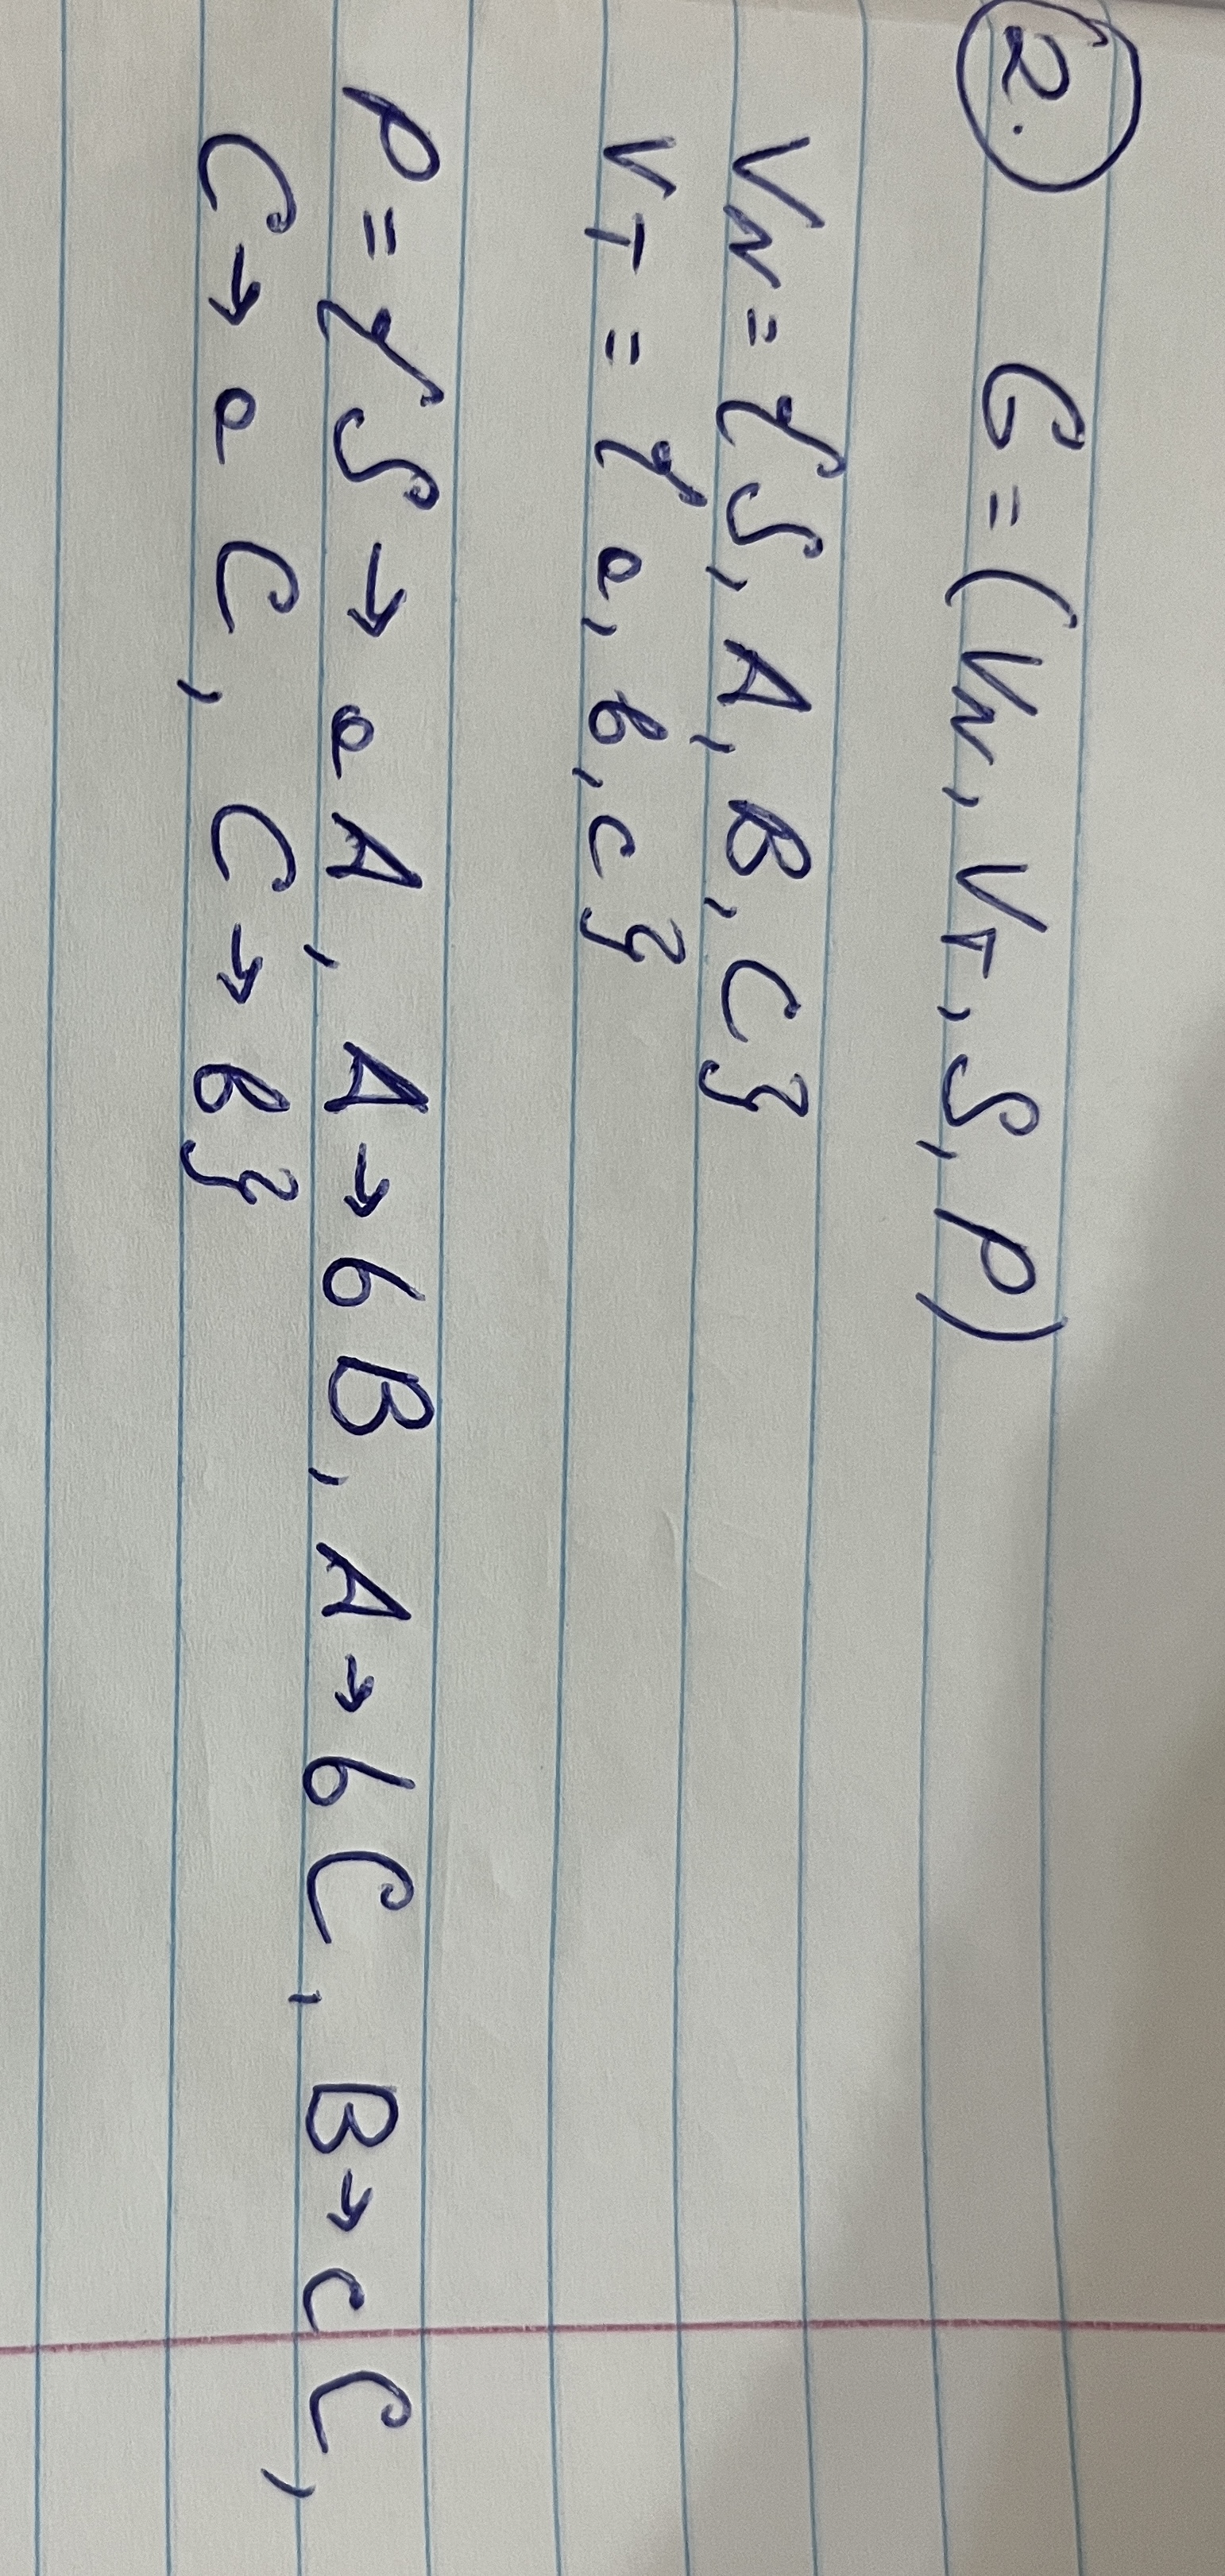 2. G = (VN, VT, S, P)
VN = {S, A, B, C}
VT = {a, b, c}
P = {S → aA, A → bB, A → bC, B → cC,
C → aC, C → b}